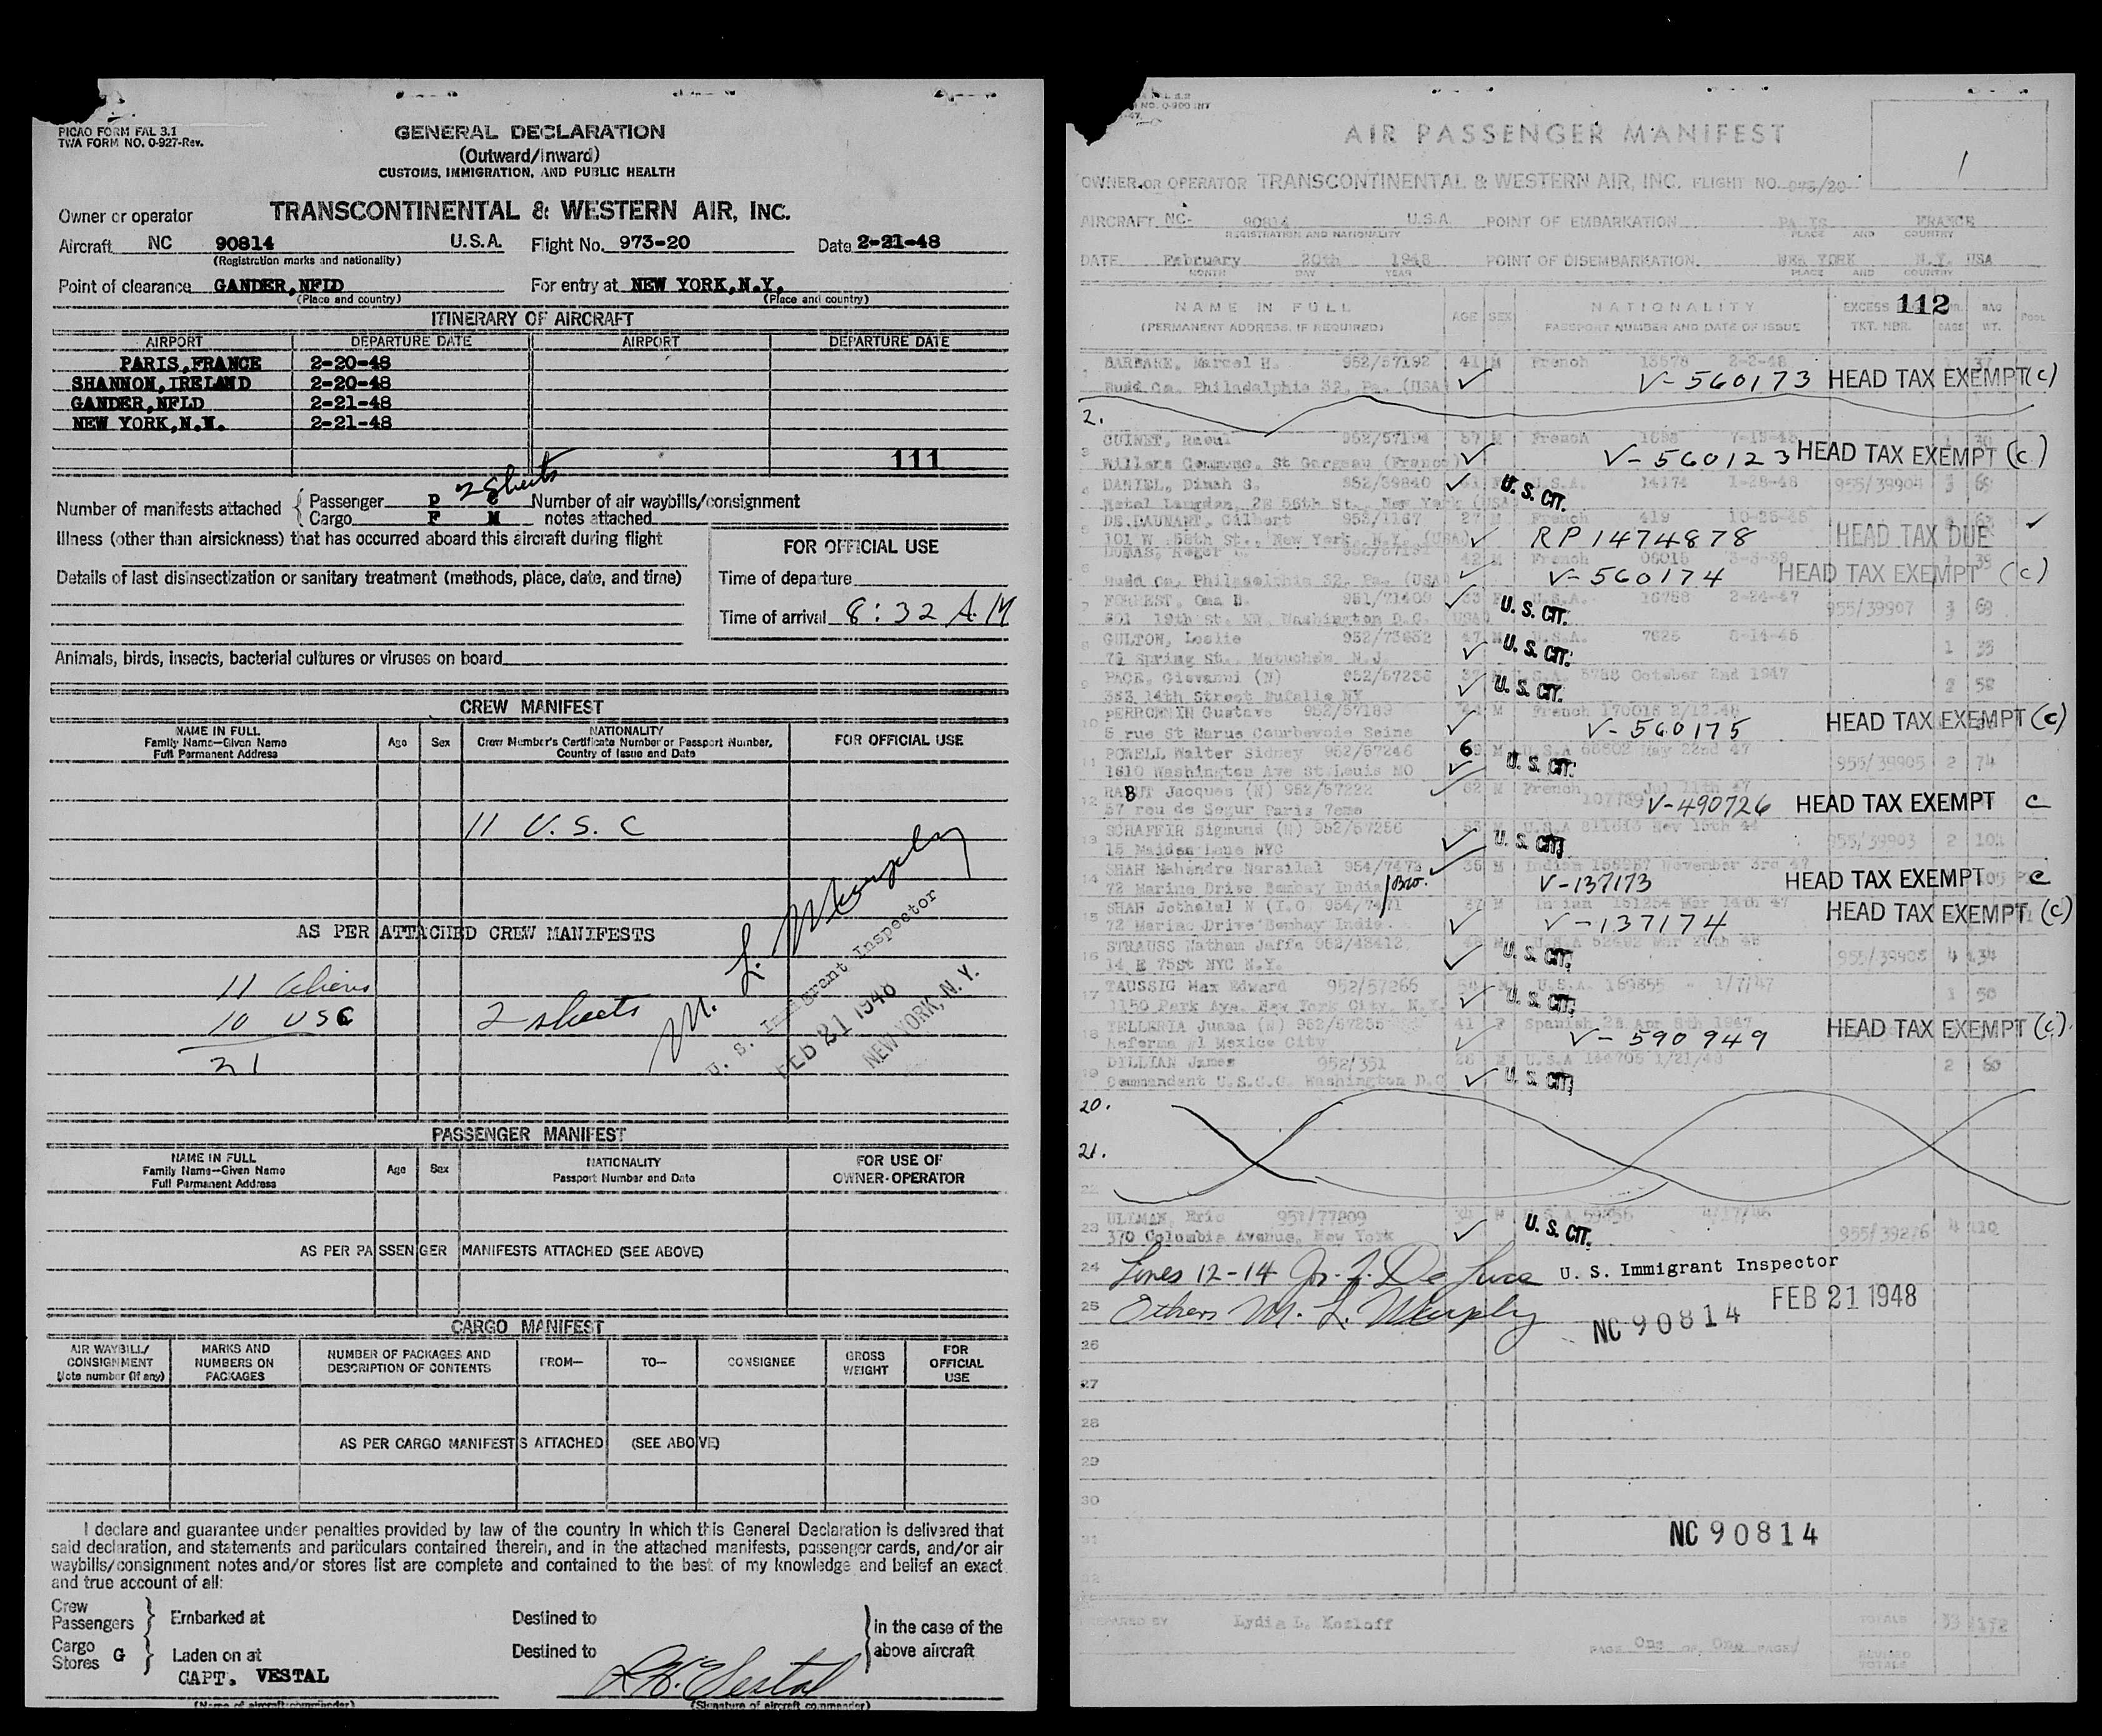 PICAO FORM FAL 3.1
TWA FORM NO. 0-927-Rev.
GENERAL DECLARATION
(Outward/Inward)
CUSTOMS, IMMIGRATION, AND PUBLIC HEALTH
Owner or operator TRANSCONTINENTAL & WESTERN AIR, INC.
Aircraft NC 90814 U.S.A. Flight No. 973-20 Date 2-21-48
(Registration marks and nationality)
Point of clearance GANDER,NFLD For entry at NEW YORK,N.Y.
(Place and country) (Place and country)
ITINERARY OF AIRCRAFT
AIRPORT DEPARTURE DATE AIRPORT DEPARTURE DATE
PARIS,FRANCE 2-20-48
SHANNON,IRELAND 2-20-48
GANDER,NFLD 2-21-48
NEW YORK,N.Y. 2-21-48
111
2 Sheets
Number of manifests attached { Passenger P Number of air waybills/consignment
Cargo F M notes attached
Illness (other than airsickness) that has occurred aboard this aircraft during flight
FOR OFFICIAL USE
Details of last disinsectization or sanitary treatment (methods, place, date, and time)
Time of departure
Time of arrival 8:32 AM
Animals, birds, insects, bacterial cultures or viruses on board
CREW MANIFEST
NAME IN FULL
Family Name—Given Name
Full Permanent Address
Age Sex
NATIONALITY
Crew Member's Certificate Number or Passport Number,
Country of Issue and Date
FOR OFFICIAL USE
11 U.S.C
AS PER ATTACHED CREW MANIFESTS
11 Aliens
10 USC
2 sheets
21
M. L. Murphy
U. S. Immigrant Inspector
FEB 21 1948
NEW YORK, N. Y.
PASSENGER MANIFEST
NAME IN FULL
Family Name—Given Name
Full Permanent Address
Age Sex
NATIONALITY
Passport Number and Date
FOR USE OF
OWNER-OPERATOR
AS PER PASSENGER MANIFESTS ATTACHED (SEE ABOVE)
CARGO MANIFEST
AIR WAYBILL/
CONSIGNMENT
Note number (if any)
MARKS AND
NUMBERS ON
PACKAGES
NUMBER OF PACKAGES AND
DESCRIPTION OF CONTENTS
FROM— TO— CONSIGNEE
GROSS
WEIGHT
FOR
OFFICIAL
USE
AS PER CARGO MANIFESTS ATTACHED (SEE ABOVE)
I declare and guarantee under penalties provided by law of the country in which this General Declaration is delivered that
said declaration, and statements and particulars contained therein, and in the attached manifests, passenger cards, and/or air
waybills/consignment notes and/or stores list are complete and contained to the best of my knowledge and belief an exact
and true account of all:
Crew
Passengers } Embarked at Destined to
in the case of the
Cargo
Stores G } Laden on at Destined to
above aircraft
CAPT. VESTAL
(Name of aircraft commander) (Signature of aircraft commander)
AIR PASSENGER MANIFEST
1
OWNER OR OPERATOR TRANSCONTINENTAL & WESTERN AIR, INC. FLIGHT NO.
AIRCRAFT NC- 90814 U.S.A. POINT OF EMBARKATION FRANCE
REGISTRATION AND NATIONALITY PLACE AND COUNTRY
DATE February 20th 1948 POINT OF DISEMBARKATION. NEW YORK N.Y. USA
MONTH DAY YEAR PLACE AND COUNTRY
NAME IN FULL
(PERMANENT ADDRESS, IF REQUIRED)
AGE SEX
NATIONALITY
PASSPORT NUMBER AND DATE OF ISSUE
EXCESS
TKT. NBR.
112
BAG
WT.
1 Marcel H. 952/57192 41 M French 13578 2-2-48
Budd Co. Philadelphia 32, Pa. (USA) V-560173 HEAD TAX EXEMPT (c)
2.
3 GUINET, Raoul 952/57194 57 M French
Willars Commune, St Gargeau (France) V-560123 HEAD TAX EXEMPT (c)
4 DANIEL, Dinah S. 952/39840 U.S.A. 14174 1-28-48 3
U. S. CIT.
2E 56th St., New York (USA)
5 Gilbert 952/1167 27 M French 419
101 W 58th St., New York, N.Y. (USA) RP 1474878 HEAD TAX DUE
6 DUMAS, Roger 42 M French
Budd Co. Philadelphia 32, Pa. (USA) V-560174 HEAD TAX EXEMPT (c)
7 FORREST, Oma B. 951/71400 U.S.A. 16758 2-24-47
801 19th St. NW. Washington D.C. (USA) U. S. CIT. 955/39907 3
8 GULTON, Leslie 47 M U.S.A. 7825
Spring St., Metuchen N.J. U. S. CIT. 1 35
9 PACE, Giovanni (N) 952/57236 5788 October 2nd 1947
14th Street Buffalo NY U. S. CIT. 2
10 Gustave 952/57189 M French
5 rue St Marus Courbevoie Seine V-560175 HEAD TAX EXEMPT (c)
11 POWELL Walter Sidney 952/57246 69 M U.S.A May 22nd 47
1610 Washington Ave St Louis MO U. S. CIT. 955/39905 2 74
12 RABUT Jacques (N) 952/57222 62 M French Jul 11th 47
rue de Segur Paris 7eme V-490726 HEAD TAX EXEMPT c
13 SCHAFFIR Sigmund (N) 952/57256 M U.S.A Nov 15th 44
15 Maiden Lane NYC U. S. CIT. 955/39903 2
14 SHAH Mahendra Narsilal 954/7472 M Indian November 3rd 47
72 Marine Drive Bombay India Bro. V-137173 HEAD TAX EXEMPT c
15 SHAH Jethalal N 954/7471 M Indian
72 Marine Drive Bombay India. V-137174 HEAD TAX EXEMPT (c)
16 STRAUSS Natham Jaffa 952/48412 U.S.A
14 E 75st NYC N.Y. U. S. CIT. 4
17 TAUSSIG Max Edward 952/57266 M U.S.A. 169855 - 1/7/47
1150 Park Ave. New York City, N.Y. U. S. CIT. 1 50
18 TELLERIA Juana (N) 41 F Spanish Apr 8th 1947
Reforma #1 Mexico City V-590949 HEAD TAX EXEMPT (c).
19 DILLIAN James 952/351 M U.S.A 1/21/48
Commandant U.S.C.G. Washington D.C U. S. CIT. 2
20.
21.
22
23 ULLMAN, Eric U.S.A.
370 Columbia Avenue, New York U. S. CIT. 4
24 Lines 12-14 De Luca U. S. Immigrant Inspector
25 Others M. L. Murphy FEB 21 1948
NC 90814
26
27
28
29
30
31 NC 90814
32
PREPARED BY Lydia L. Kosloff
PAGE One OF One PAGES
TOTALS 33
REVISED
TOTALS